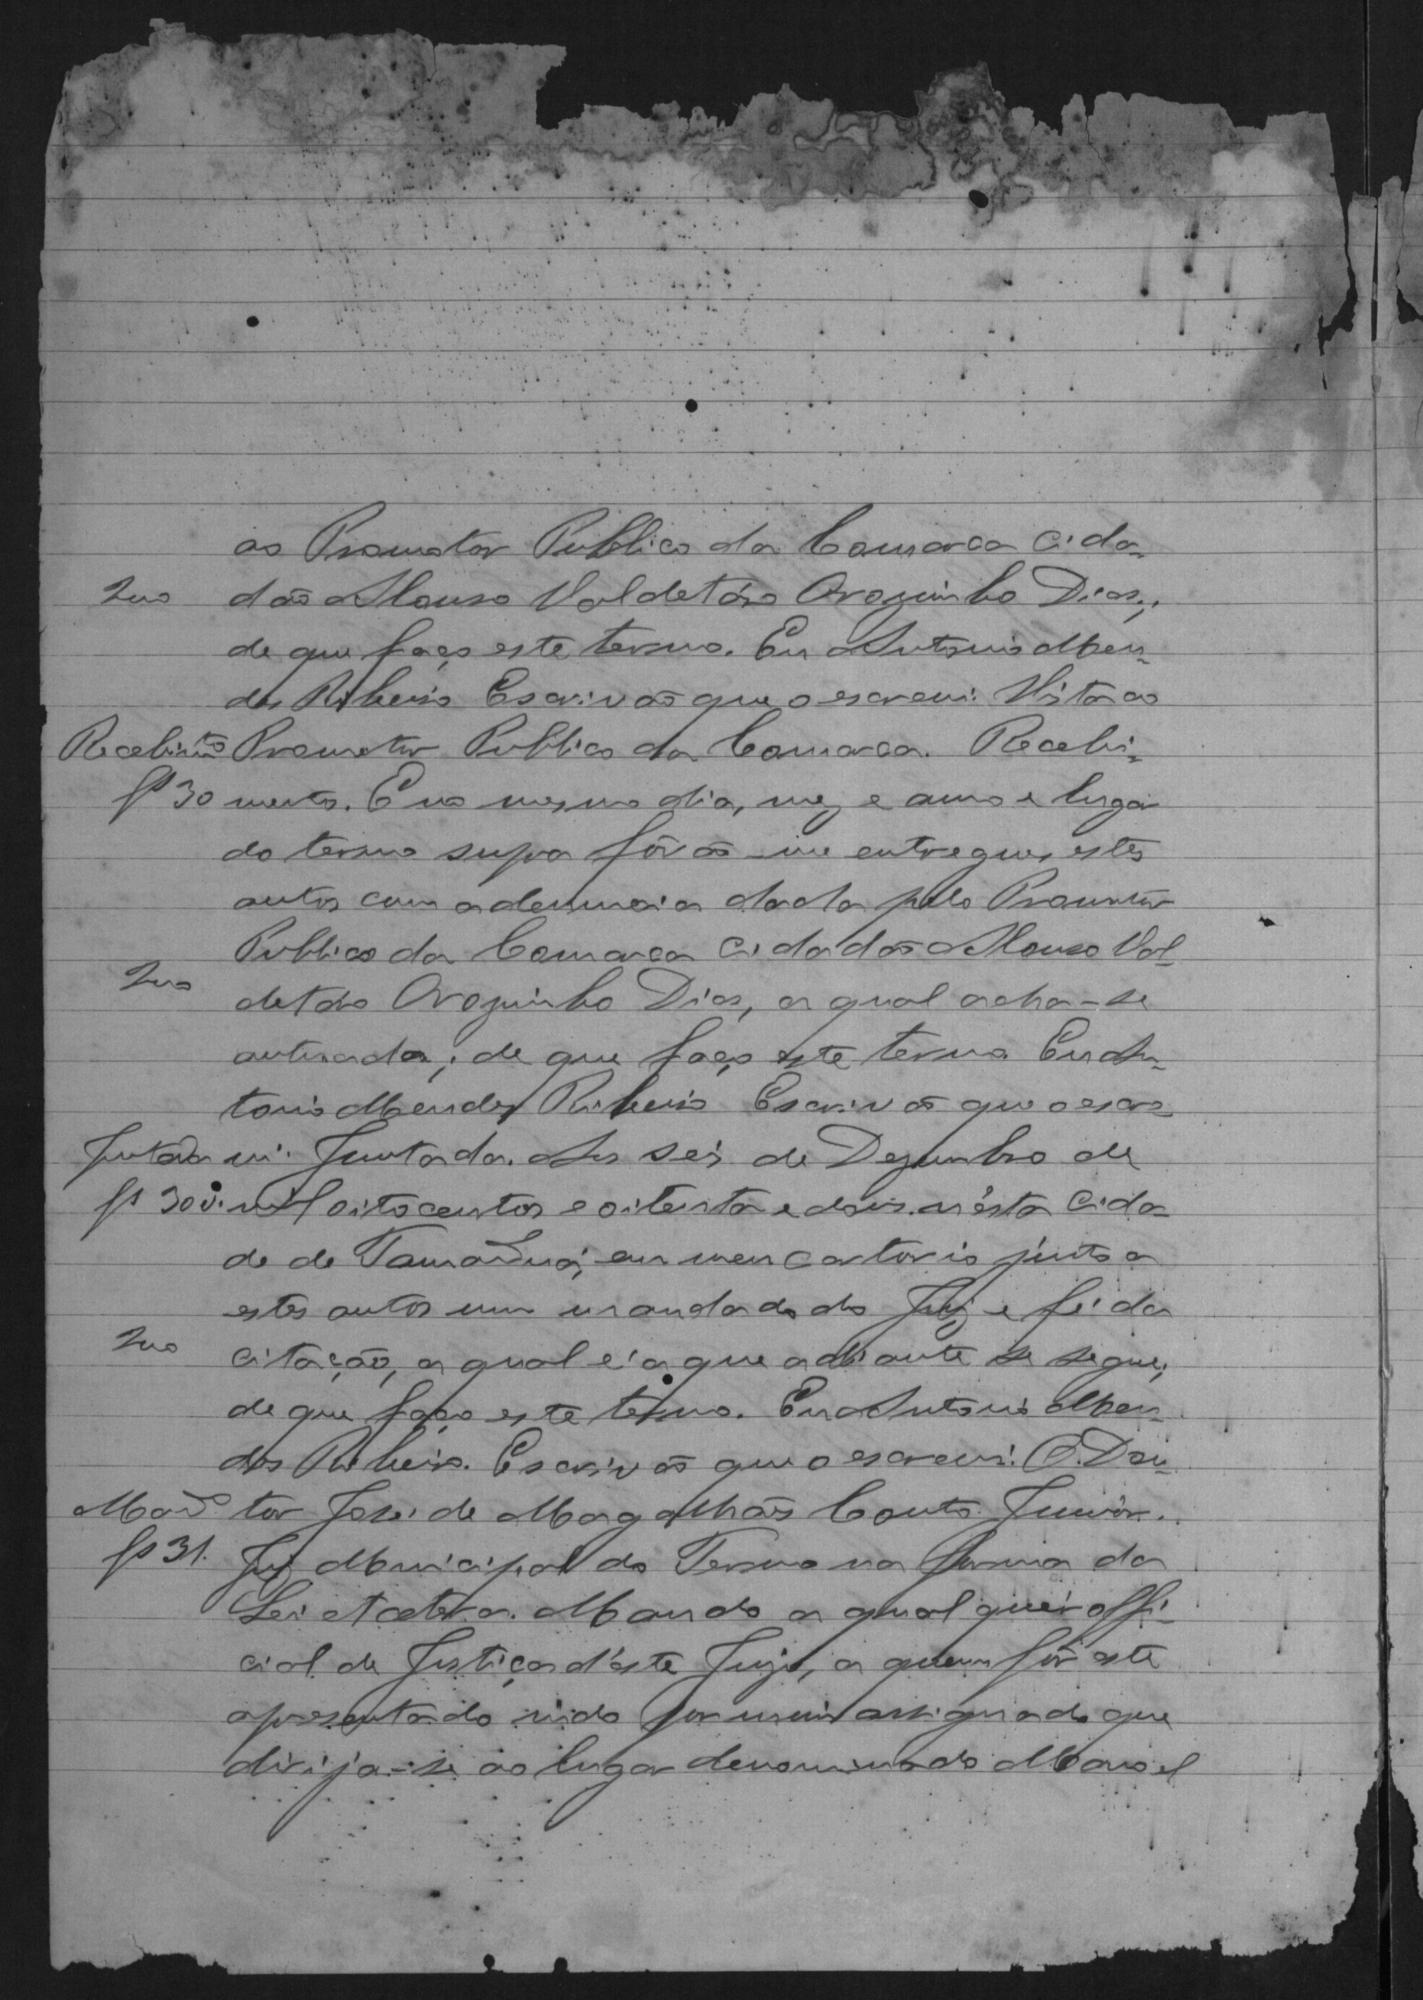 ao Promotor Publico da Comarca Cida-
dão Affonso Valdetáro Orozimbo Dias;
de que faço este termo. Eu Antonio Men-
des Ribeiro Escrivão que o escrevi. Vista ao
Recebim.to Promotor Publico da Comarca. Recebi-
fs 30 mento. E no mesmo dia, mez e anno e lugar
do termo supra fôrão-me entregues estes
autos com a denuncia dada pelo Promotor
Publico da Comarca Cidadão Affonso Val-
detáro Orozimbo Dias, a qual acha-se
autuada; de que faço este termo. Eu An-
tonio Mendes Ribeiro Escrivão que o escre-
Juntada vi. Juntada. Aos seis de Dezembro de
fs 30 v. mil oitocentos e oitenta e dois. n'ésta Cida-
de de em meu cartorio junto a
estes autos um mandado do Juiz e fé da
citação, a qual é a que adiante se segue;
de que faço este termo. Eu Antonio Men-
des Ribeiro. Escrivão que o escrevi. O Dou-
Mand.o tor José de Magalhães Couto Junior.
fs 31. Juiz Municipal do Termo na forma da
Lei et cetera. Mando a qual quér offi-
cial de Justiça d'éste Juizo, a quem fôr este
apresentado indo por mim assignado que
dirija-se ao lugar denominado Manoel